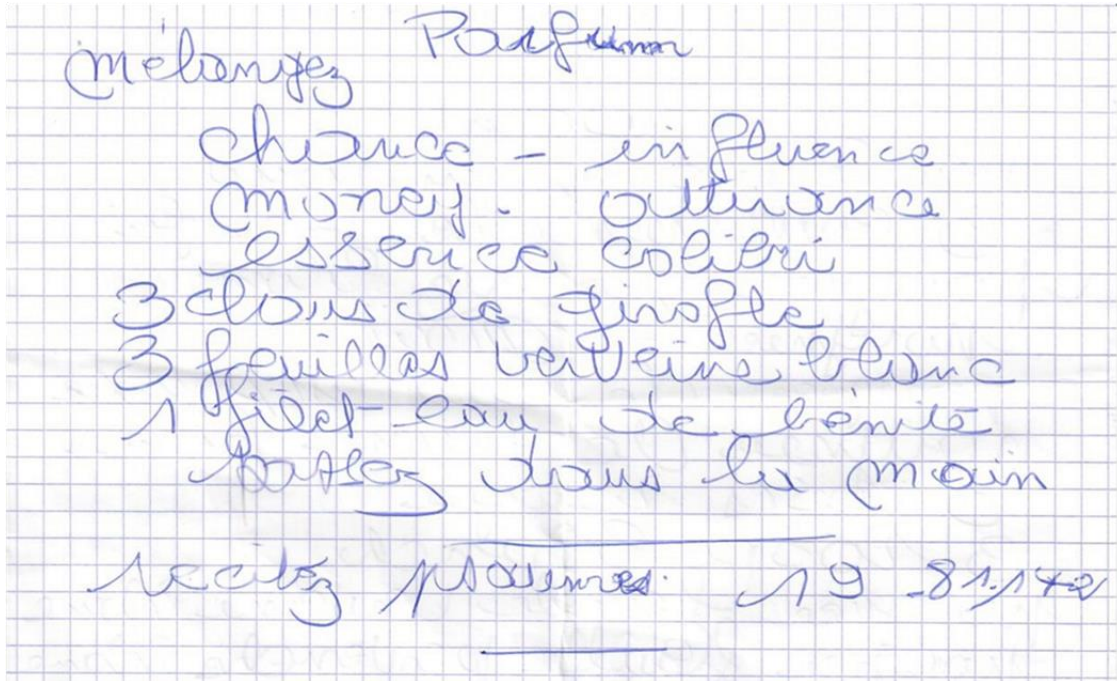 Parfum
mélangez
chance - influence
money - attirance
essence colibri
3 clous de girofle
3 feuilles verveine blanc
1 filet eau de bénite
dans la main
recitez psaumes 19 -81.142